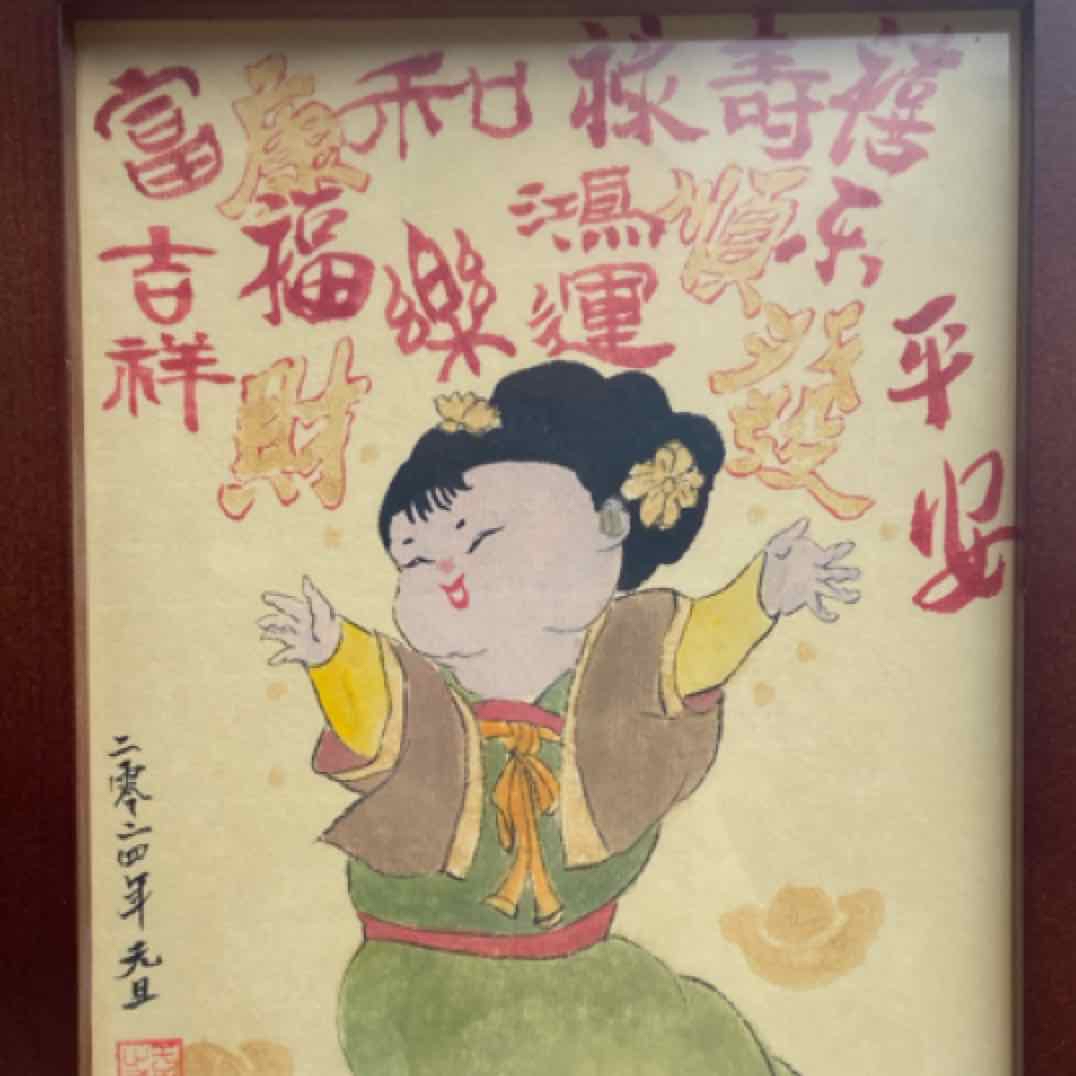 富
康
和
祿
壽
禧
吉祥
福
樂
鴻運
順
乐
財
發
平安
二零二四年 元旦